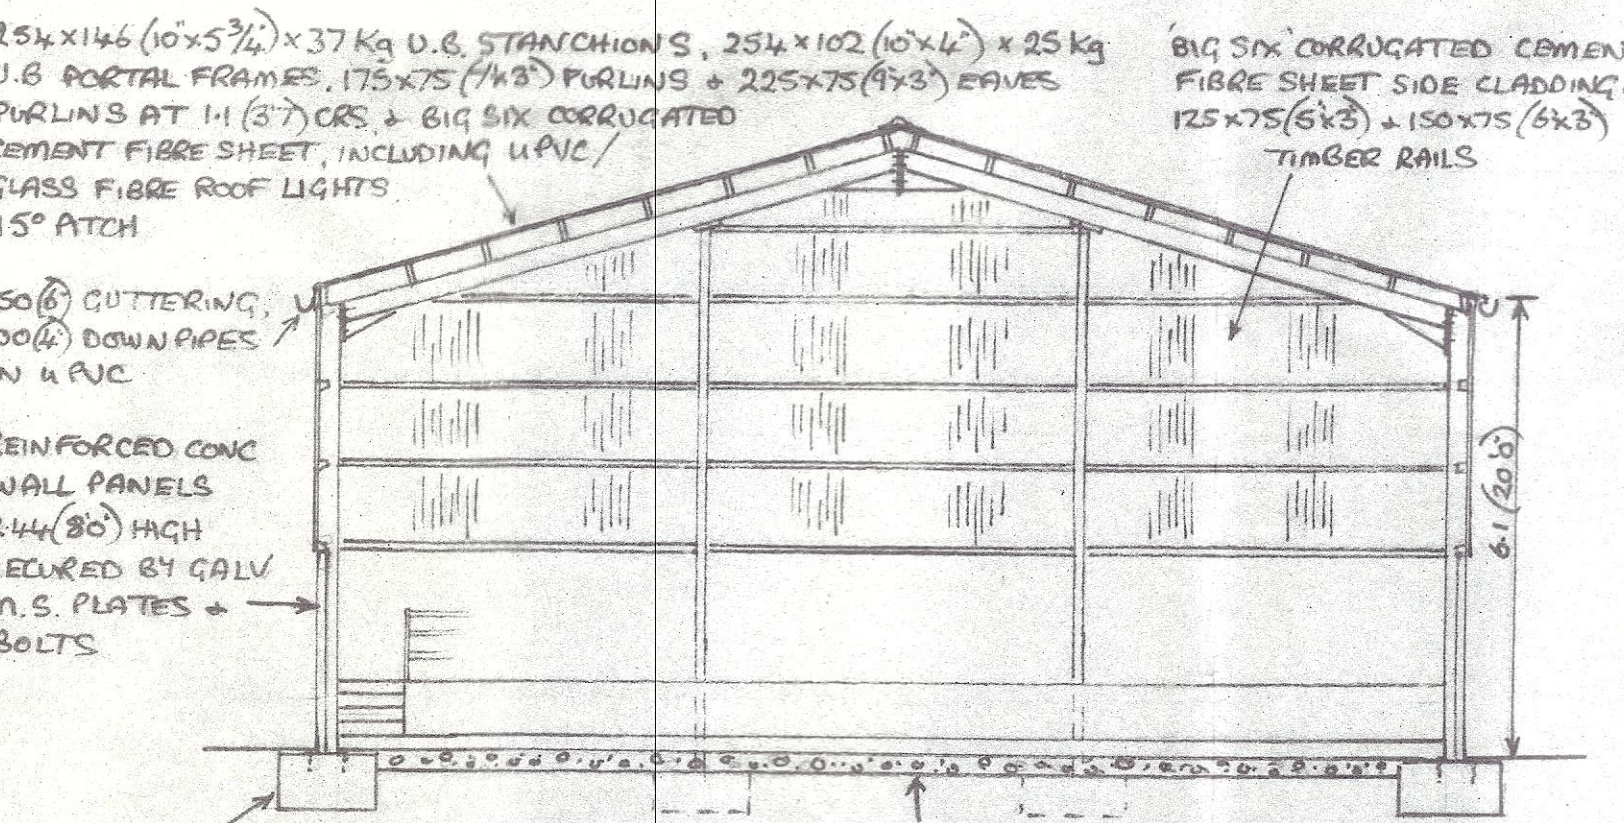 254×146 (10"×5¾") × 37 Kg U.B. STANCHIONS, 254×102 (10"×4") × 25 kg
U.B PORTAL FRAMES, 175×75 (7"×3") PURLINS + 225×75 (9"×3") EAVES
PURLINS AT 1.1 (3'7") CRS & BIG SIX CORRUGATED
CEMENT FIBRE SHEET, INCLUDING uPVC/
GLASS FIBRE ROOF LIGHTS
15° PITCH
'BIG SIX' CORRUGATED CEMEN
FIBRE SHEET SIDE CLADDING
125×75 (5"×3") + 150×75 (6"×3")
TIMBER RAILS
50 (6") GUTTERING,
00 (4") DOWNPIPES
N uPVC
REINFORCED CONC
WALL PANELS
2.44 (8'0") HIGH
SECURED BY GALV
M.S. PLATES &
BOLTS
6.1 (20'0")